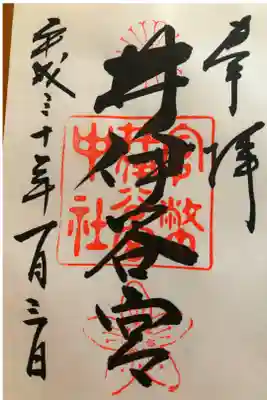 奉拝
井伊谷宮
官幣中社
井伊谷宮
平成三十年一月三日